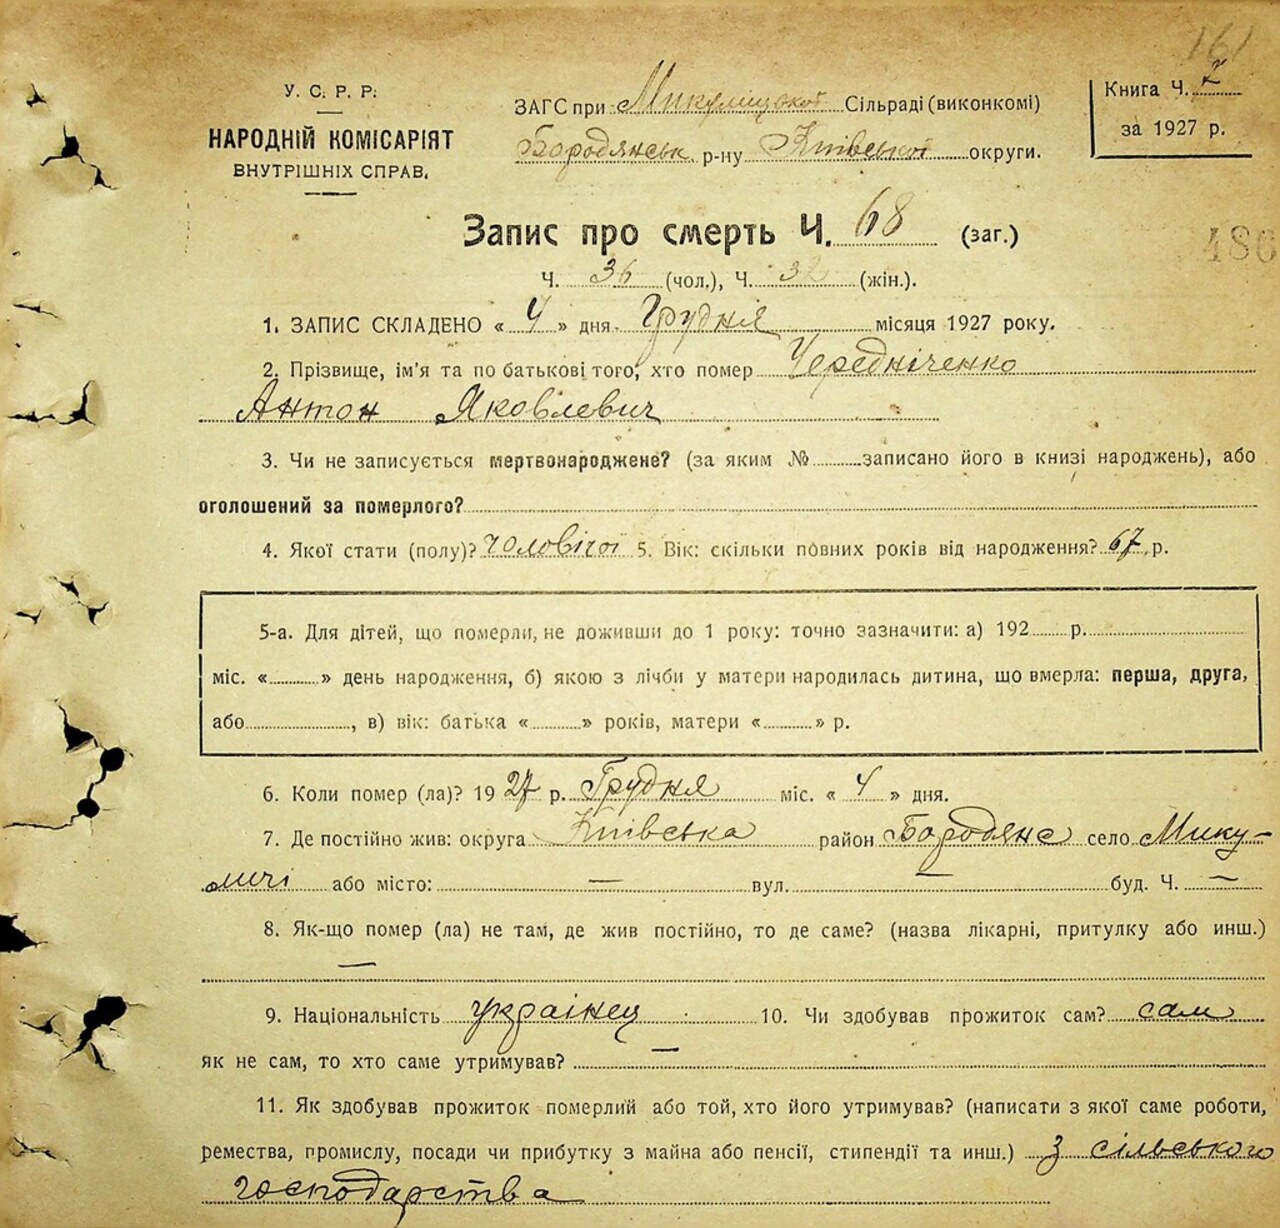 161
У. С. Р. Р.
НАРОДНІЙ КОМІСАРІЯТ
ВНУТРІШНІХ СПРАВ.
ЗАГС при Микулицької Сільраді (виконкомі)
Бородянськ р-ну Київської округи.
Книга Ч. 2
за 1927 р.
Запис про смерть Ч. 68 (заг.)
486
Ч. 36 (чол.), Ч. 32 (жін.).
1. ЗАПИС СКЛАДЕНО « 4 » дня Грудня місяця 1927 року.
2. Прізвище, ім'я та по батькові того, хто помер Чередніченко
Антон Яковлевич
3. Чи не записується мертвонароджене? (за яким № записано його в книзі народжень), або
оголошений за померлого?
4. Якої стати (полу)? чоловічої 5. Вік: скільки повних років від народження? 67 р.
5-а. Для дітей, що померли, не доживши до 1 року: точно зазначити: а) 192 р.
міс. « » день народження, б) якою з лічби у матери народилась дитина, що вмерла: перша, друга,
або , в) вік: батька « » років, матери « » р.
6. Коли помер (ла)? 1927 р. Грудня міс. « 4 » дня.
7. Де постійно жив: округа Київська район Бородянс село Мику-
личі або місто: — вул. — буд. Ч. —
8. Як-що помер (ла) не там, де жив постійно, то де саме? (назва лікарні, притулку або инш.)
—
9. Національність українец 10. Чи здобував прожиток сам? сам
як не сам, то хто саме утримував? —
11. Як здобував прожиток померлий або той, хто його утримував? (написати з якої саме роботи,
ремества, промислу, посади чи прибутку з майна або пенсії, стипендії та инш.) З сільського
господарства